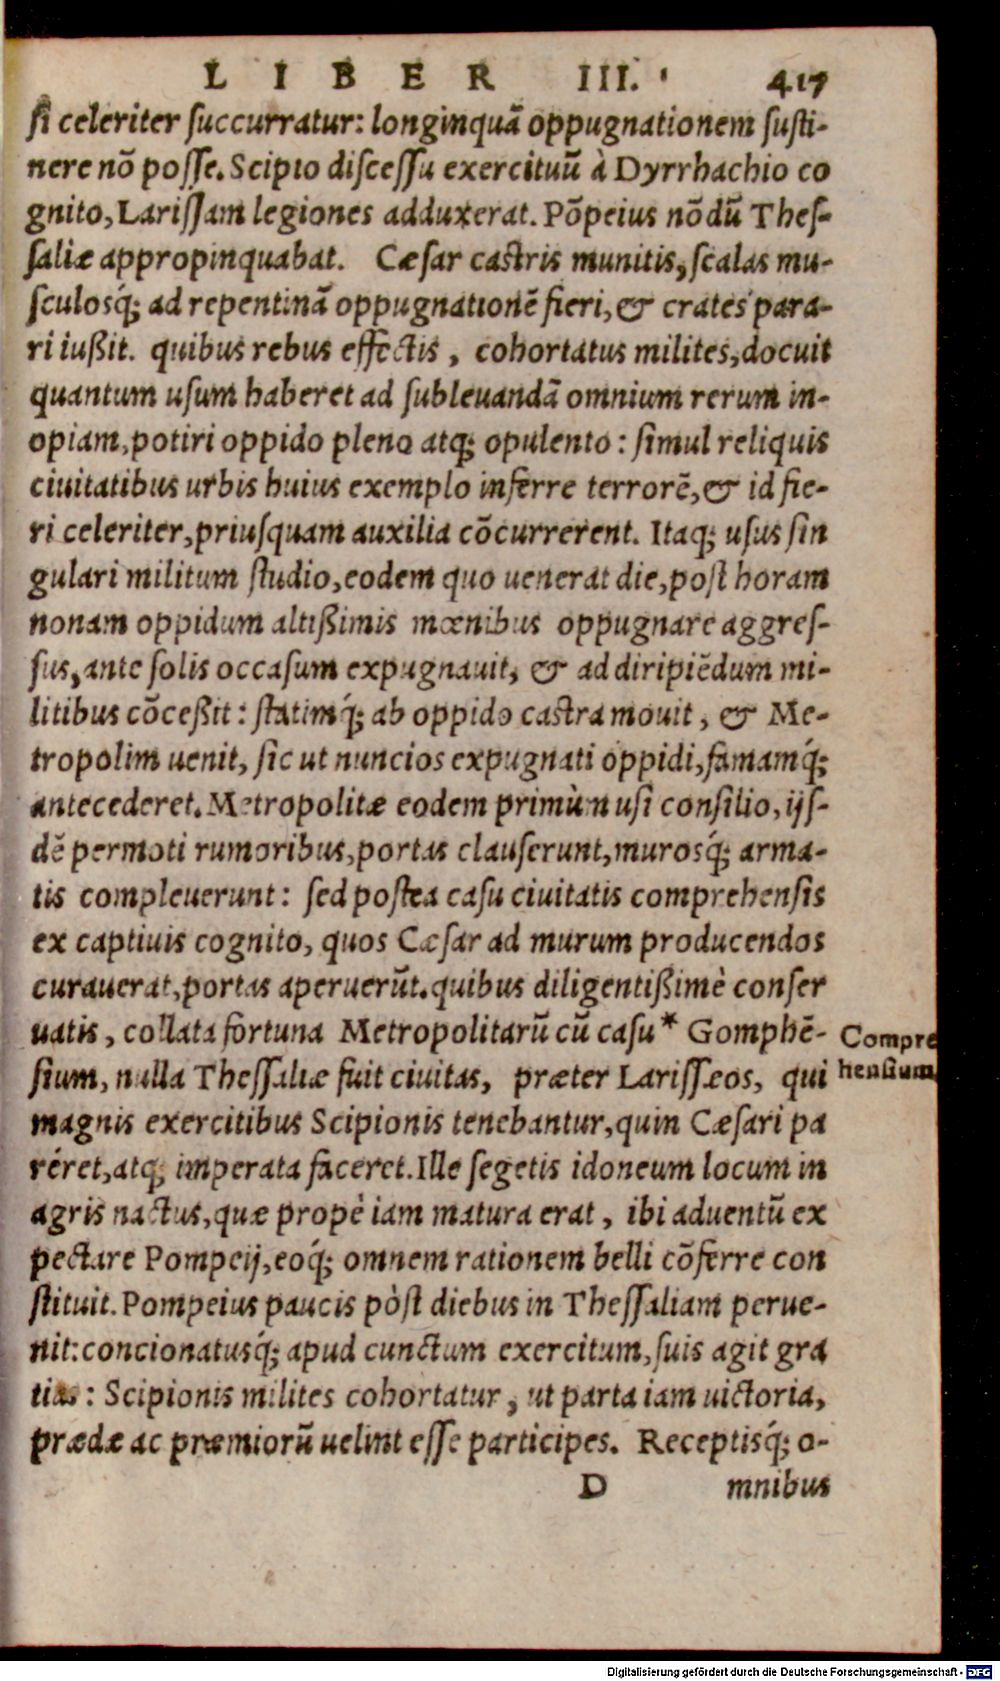 LIBER III. 417
ſi celeriter ſuccurratur: longinquã oppugnationem ſuſti-
nere nõ poſſe. Scipio diſceſſu exercituũ à Dyrrhachio co
gnito, Lariſſam legiones adduxerat. Põpeius nõdũ Theſ-
ſaliæ appropinquabat. Cæſar caſtris munitis, ſcalas mu-
ſculosq́; ad repentinã oppugnationẽ fieri, & crates para-
ri iußit. quibus rebus effectis, cohortatus milites, docuit
quantum uſum haberet ad ſubleuandã omnium rerum in-
opiam, potiri oppido pleno atq; opulento: ſimul reliquis
ciuitatibus urbis huius exemplo inferre terrorẽ, & id fie-
ri celeriter, priuſquam auxilia cõcurrerent. Itaq; uſus ſin
gulari militum ſtudio, eodem quo uenerat die, poſt horam
nonam oppidum altißimis mœnibus oppugnare aggreſ-
ſus, ante ſolis occaſum expugnauit, & ad diripiẽdum mi-
litibus cõceßit: ſtatimq́; ab oppido caſtra mouit, & Me-
tropolim uenit, ſic ut nuncios expugnati oppidi, famamq́;
antecederet. Metropolitæ eodem primùm uſi conſilio, ijſ-
dẽ permoti rumoribus, portas clauſerunt, murosq́; arma-
tis compleuerunt: ſed poſtea caſu ciuitatis comprehenſis
ex captiuis cognito, quos Cæſar ad murum producendos
curauerat, portas aperuerũt. quibus diligentißimè conſer
uatis, collata fortuna Metropolitarũ cũ caſu * Gomphẽ-
ſium, nulla Theſſaliæ fuit ciuitas, præter Lariſſæos, qui
magnis exercitibus Scipionis tenebantur, quin Cæſari pa
réret, atq; imperata faceret. Ille ſegetis idoneum locum in
agris nactus, quæ propè iam matura erat, ibi aduentũ ex
pectare Pompeij, eoq́; omnem rationem belli cõferre con
ſtituit. Pompeius paucis pòſt diebus in Theſſaliam perue-
nit: concionatusq́; apud cunctum exercitum, ſuis agit gra
tias: Scipionis milites cohortatur, ut parta iam uictoria,
prædæ ac præmiorũ uelint eſſe participes. Receptisq́; o-
D mnibus
Compre
henſium
Digitalisierung gefördert durch die Deutsche Forschungsgemeinschaft - DFG